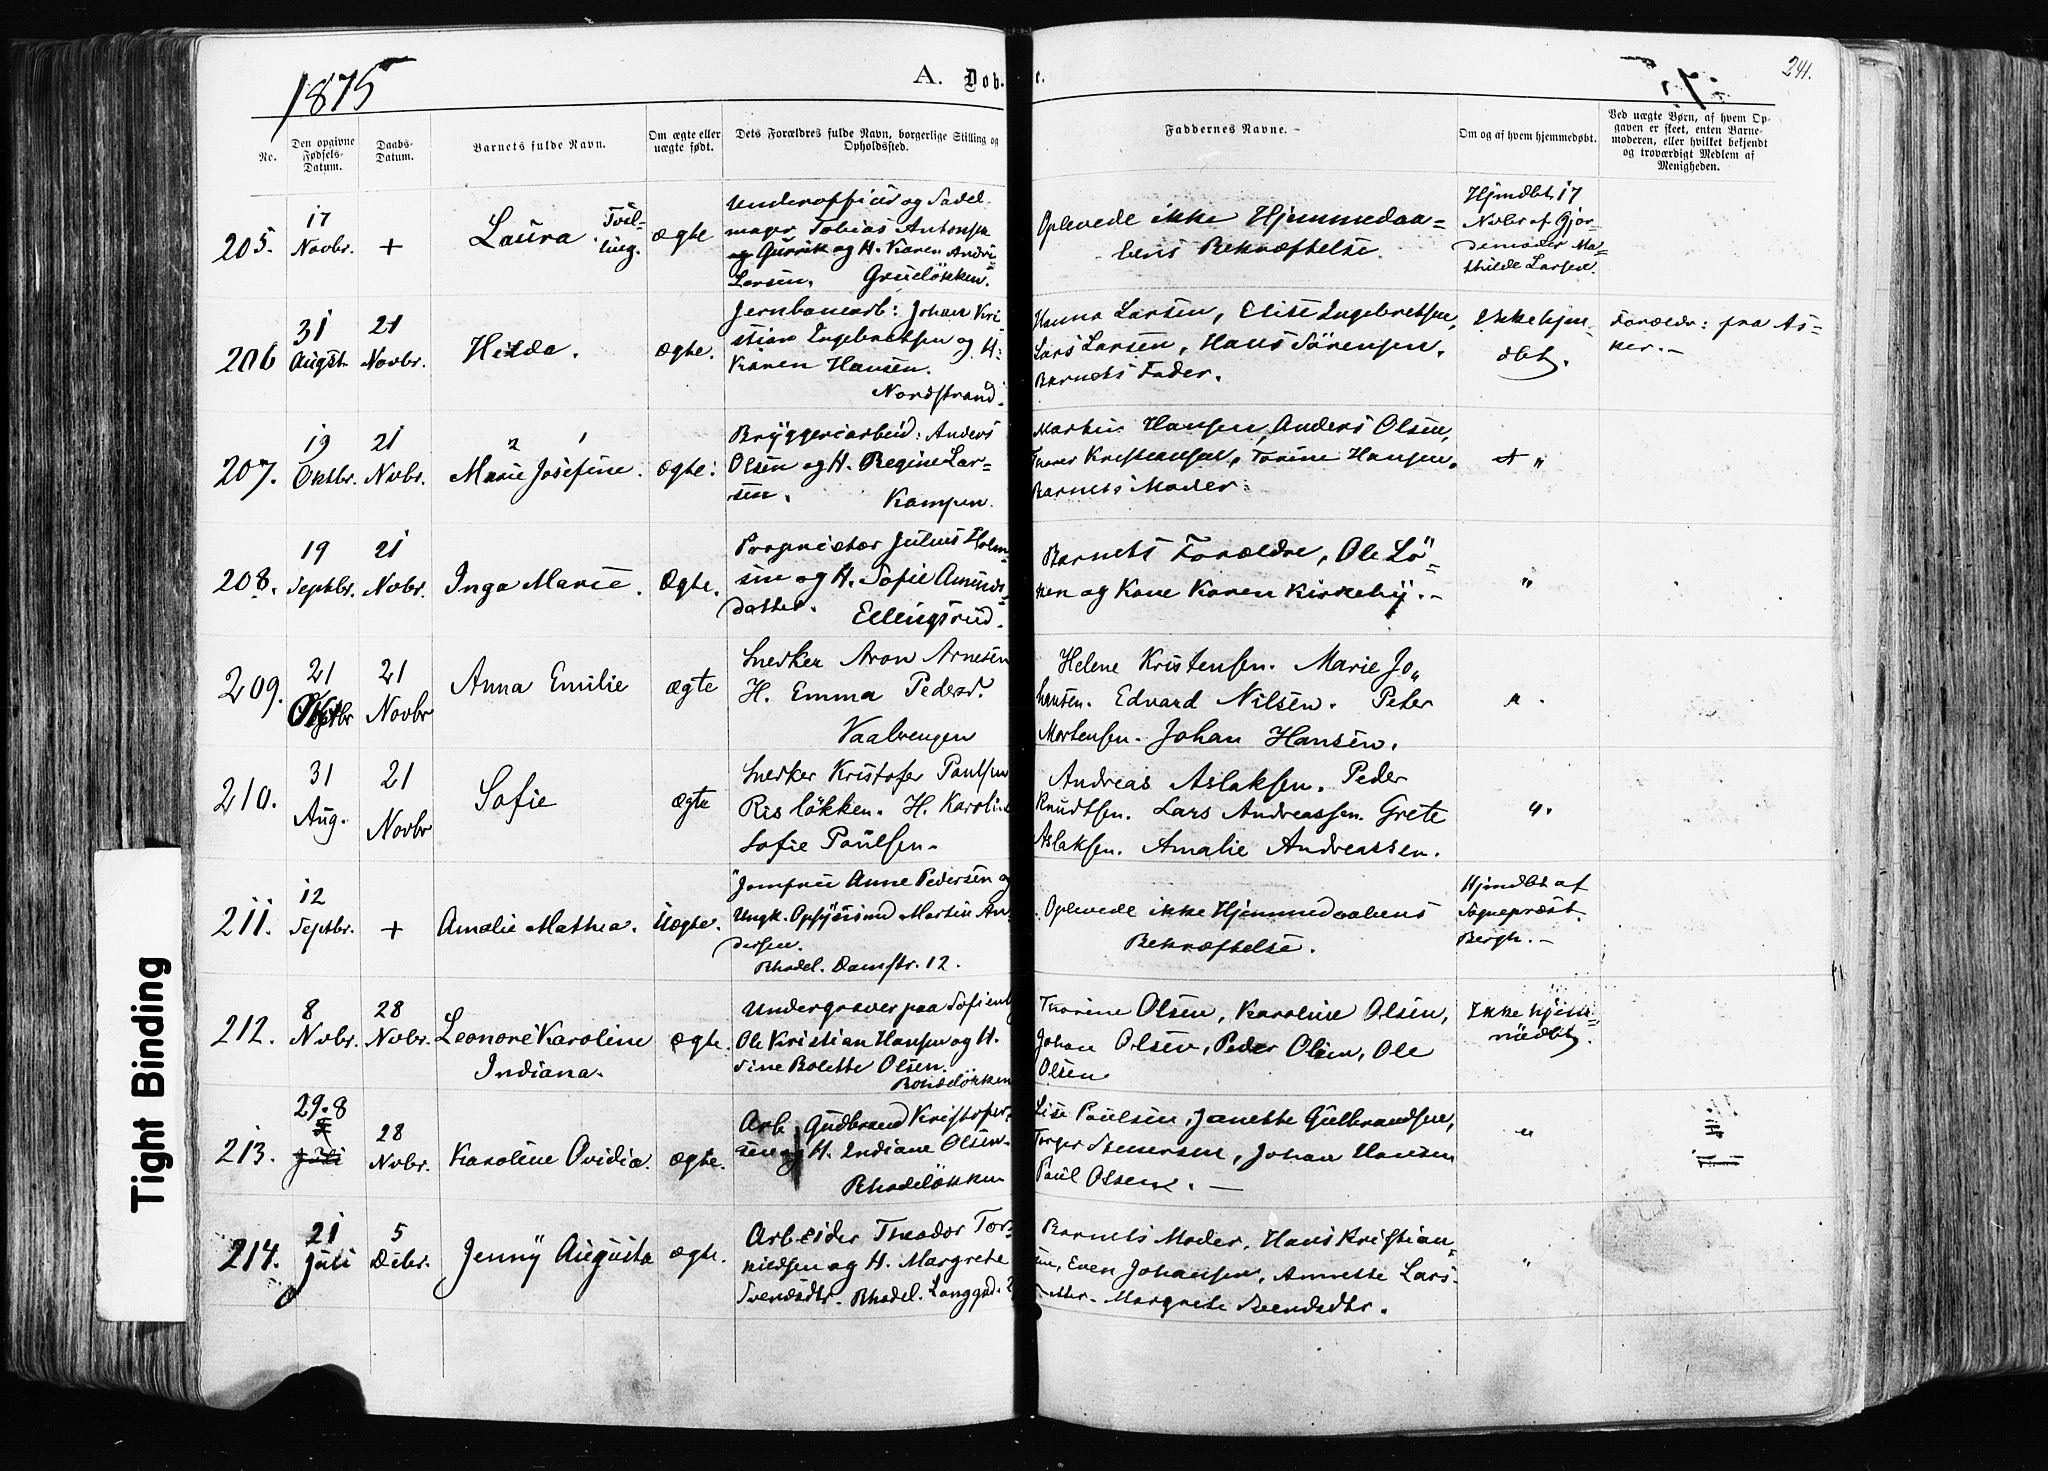 1875
A. Døb- e.
241.
No.
Den opgivne Fødsels-Datum.
Daabs-Datum.
Barnets fulde Navn.
Om ægte eller uægte født.
Dets Forældres fulde Navn, borgerlige Stilling og Opholdssted.
Faddernes Navne.
Om og af hvem hjemmedøbt.
Ved uægte Børn, af hvem Op-
gaven er skeet, enten Barne-
moderen, eller hvilket bekjendt
og troværdigt Medlem af
Menigheden.
205. 17 Novbr. + Laura Tvil-
ling. ægte
Underofficer og Sadel
mager Tobias Antonsen
Gurrik og H. Karen Andr
Larsen. Grueløkken.
Oplevede ikke Hjemmedaa-
bens Bekræftelse.
Hjmdbt 17
Novbr af Gjor-
demoder Ma-
thilde Larsen.
206 31 Augst. 21 Novbr. Hilda. ægte.
Jernbanearb: Johan Kri
stian Ingebretsen og H:
Karen Hansen.
Nordstrand.
Hanna Larsen, Elise Ingebretsen,
Lars Larsen, Hans Sörensen.
Barnets Fader.
Ikke hjm
dbt.
Forældr: fra As-
ker.-
207. 19 Oktbr. 21 Novbr. 2 1
Marie Josefine. ægte:
Bryggeriarbeid: Anders
Olsen og H. Regine Lar-
sen. Kampen.
Martin Hansen, Anders Olsen,
Thorer Kristiansen, Torine Hansen,
Barnets Moder.
"
208. 19 Septbr. 21 Novbr. Inga Marie. Ægte.
Proprietær Julius Holm
sen og H. Sofie Amunds
datter. Ellingsrud.
Barnets Forældre, Ole Lö-
ken og Kone Karen Kirkeby.-
"
209. 21 Oktbr 21 Novbr Anna Emilie ægte
Snedker Aron Arnesen
H. Emma Pedersd.
Vaalerengen
Helene Kristensen. Marie Jo„
hansen. Edvard Nilsen. Peter
Mortensen. Johan Hansen.
" .
210. 31 Aug. 21 Novbr Sofie ægte
Snedker Kristofer Paulsen
Risløkken. H. Karoline
Sofie Paulsen.
Andreas Aslaksen. Peder
Knudtsen. Lars Andreassen. Grete
Aslaksen. Amalie Andreassen.
".
211. 12 Septbr. + Amalie Mathea. Uægte.
Jomfru Anne Pedersen og
Ungk. Opsynsmd Martin An
dersen.
Rhodel. Damstr. 12.
Oplevede ikke Hjemmedaabens
Bekræftelse.
Hjmdbt af
Sognepræst
Bergh.-
212. 8 Novbr. 28 Novbr. Leonore Karoline
Indiana. ægte.
Undergraver paa Sofienb
Ole Kristian Hansen og H.
Sine Bolette Olsen.
Rodeløkken
Thorine Olsen, Karoline Olsen,
Johan Olsen, Peder Olsen, Ole
Olsen
Ikke hjem
medbt.
213. 29.8 Juli 28 Novbr. Karoline Ovidia. ægte.
Arb Gudbrand Kristofer-
sen og H. Indiane Olsen
Rhodeløkken
Lise Paulsen, Janette Gulbrandsen,
Torger Stenersen, Johan Hansen
Paul Olsen.-
"
214. 21 Juli 5 Debr. Jenny Augusta ægte.
Arbeider Theodor Tor-
kildsen og H. Margrete
Svendsdtr. Rhodel. Langgad.
Barnets Moder, Hans Kristian-
sen, Even Johansen, Annette Lars-
dtr. Margrete Svendsdtr.
"
Tight Binding